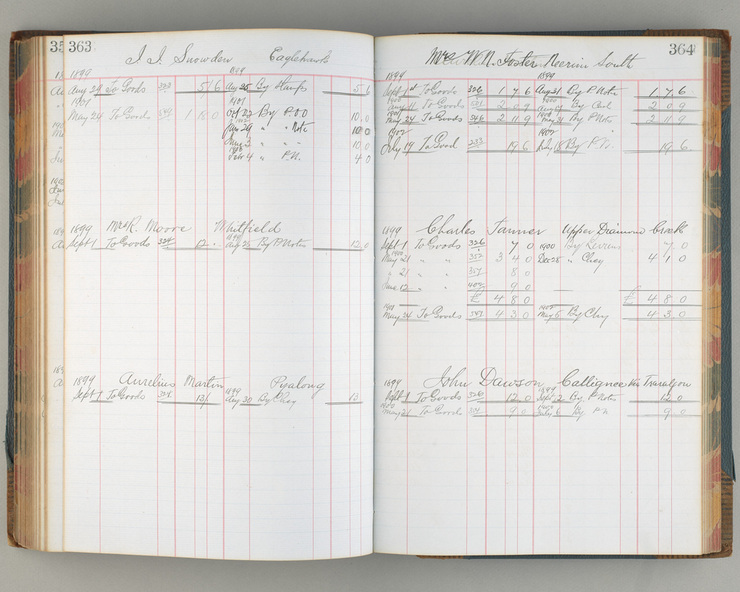 35 363
J. J. Snowden Eaglehawk
1899 1899
Aug 24 To Goods 5 6 Aug 25 By Stamps 5 6
1901 1901
May 24 To Goods 1 18 0 Oct 22 By P.O.O 10 0
Jan 29 " " Note 10 0
" 10 0
Feb 4 " P.N. 4 0
1899 Mrs R. Moore Whitfield
Sept 1 To Goods 324 12 " Aug 25 By P. Note 12 0
1899 Aurelius Martin Pyalong
1899
Sept 1 To Goods 13/ Aug 30 By Chey 13
364
Mrs W. N. Foster Neerim South
1899 1899
Sept 1st To Goods 326 1 7 6 Aug 31 By P. Note 1 7 6
1900 1900
11 To Goods 2 0 9 By 2 0 9
May 24 To Goods 546 2 11 9 By P. Note 2 11 9
1902 1902
July 19 To Good 233 19 6 July 18 By P.N. 19 6
1899 Charles Tanner Upper Diamond Creek
Sept 1 To Goods 326 7 0 1900 By 7 0
May 21 " " 357 3 4 0 Dec 28 " Chey 4 1 0
" 21 " 357 8 0
June 12 " 9 0
£ 4 8 0 £ 4 8 0
1901
May 24 To Goods 547 4 3 0 May 6 By Chey 4 3 0
1899 John Dawson Callignee via Traralgon
1899
Sept 1 To Goods 326 12 0 Sept 2 By P. Note 12 0
1900
May 21 To Goods 9 0 July 6 By P.N. 9 0